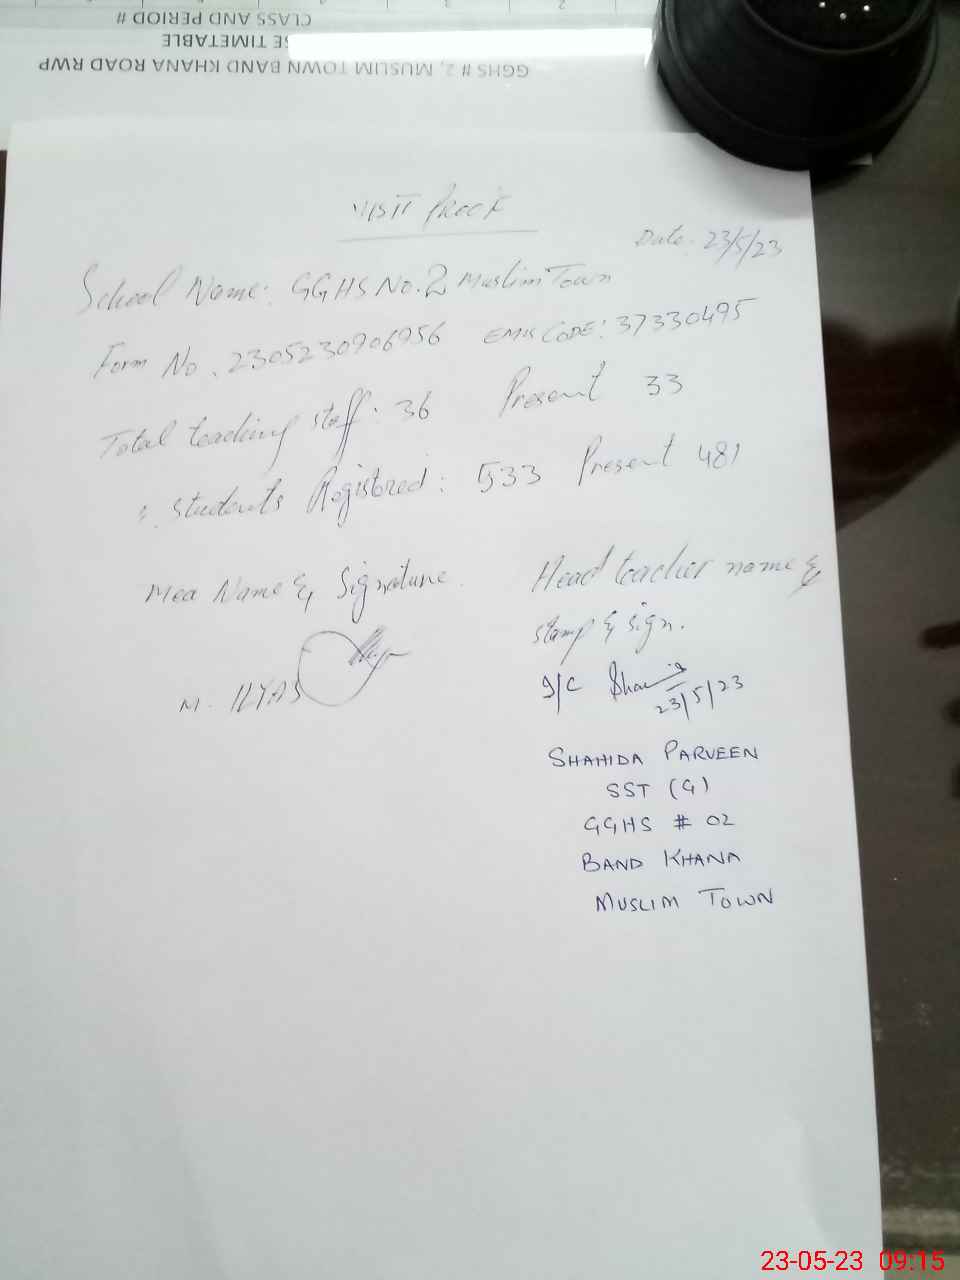 CLASS AND PERIOD #
SE TIMETABLE
GGHS # 2, MUSLIM TOWN BAND KHANA ROAD RWP
VISIT PROOF
Date: 23/5/23
School Name: GGHS No.2 Muslim Town
Form No. 2305230906956 EMIS CODE: 37330495
Total teaching staff: 36 Present 33
" students Registered: 533 Present 481
Mea Name & Signature.
Head teacher name &
stamp & sign.
M. ILYAS
I/C
23/5/23
SHAHIDA PARVEEN
SST (G)
GGHS # 02
BAND KHANA
MUSLIM TOWN
23-05-23 09:15